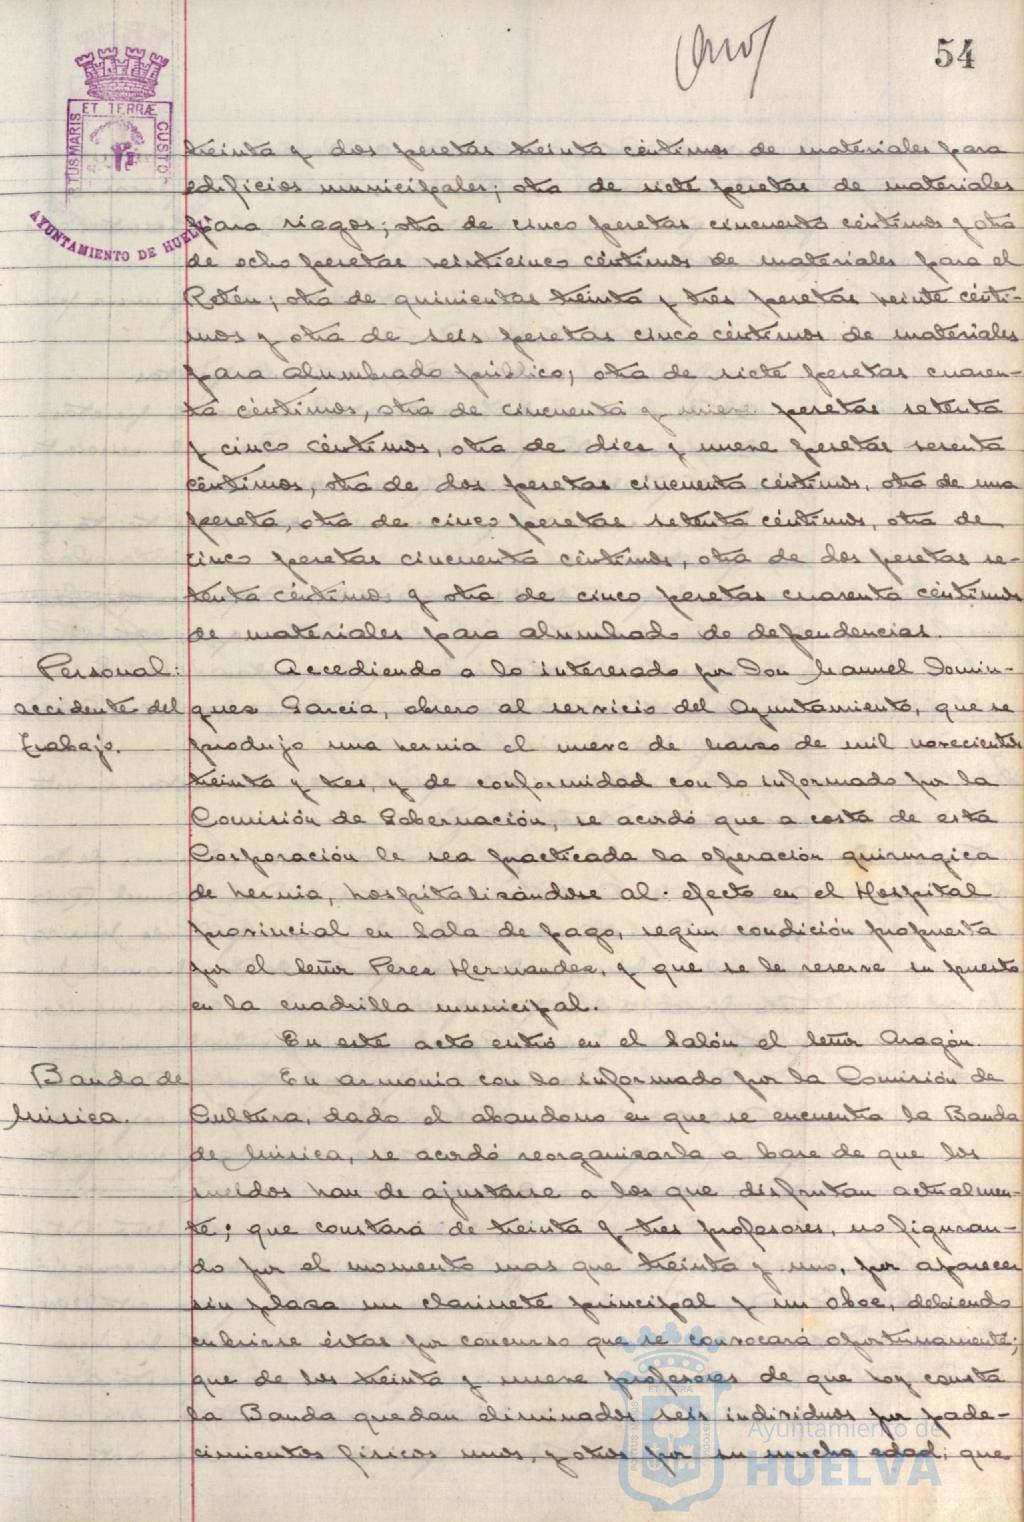 54
ET TERRÆ
TUS MARIS
CUSTO
AYUNTAMIENTO DE HUELVA
treinta y dos pesetas treinta céntimos de materiales para
edificios municipales; otra de siete pesetas de materiales
para riegos; otra de cinco pesetas cincuenta céntimos y otra
de ocho pesetas veinticinco céntimos de materiales para el
Retén; otra de quinientas treinta y tres pesetas veinte cénti-
mos y otra de seis pesetas cinco céntimos de materiales
para alumbrado público; otra de siete pesetas cuaren-
ta céntimos, otra de cincuenta y nueve pesetas setenta
y cinco céntimos, otra de diez y nueve pesetas sesenta
céntimos, otra de dos pesetas cincuenta céntimos, otra de una
peseta, otra de cinco pesetas setenta céntimos, otra de
cinco pesetas cincuenta céntimos, otra de dos pesetas se-
tenta céntimos y otra de cinco pesetas cuarenta céntimos
de materiales para alumbrado de dependencias.
Personal:
accidente del
trabajo.
Accediendo a lo interesado por Don Manuel Domin-
guez Garcia, obrero al servicio del Ayuntamiento, que se
produjo una hernia el nueve de marzo de mil novecientos
treinta y tres, y de conformidad con lo informado por la
Comisión de Gobernación, se acordó que a costa de esta
Corporación le sea practicada la operación quirurgica
de hernia, hospitalizándose al efecto en el Hospital
provincial en Sala de pago, según condición propuesta
por el Señor Perez Hernandez, y que se le reserve su puesto
en la cuadrilla municipal.
En este acto entró en el Salón el Señor Aragón.
Banda de
Música.
En armonia con lo informado por la Comisión de
Cultura, dado el abandono en que se encuentra la Banda
de Música, se acordó reorganizarla a base de que los
sueldos han de ajustarse a los que disfrutan actualmen-
te; que constará de treinta y tres profesores, no figuran-
do por el momento mas que treinta y uno, por aparecer
sin plaza un clarinete principal y un oboe, debiendo
cubrirse éstas por concurso que se convocará oportunamente;
que de los treinta y nueve profesores de que hoy consta
la Banda quedan eliminados seis individuos por pade-
cimientos físicos unos, y otros por su mucha edad; que
Ayuntamiento de
HUELVA